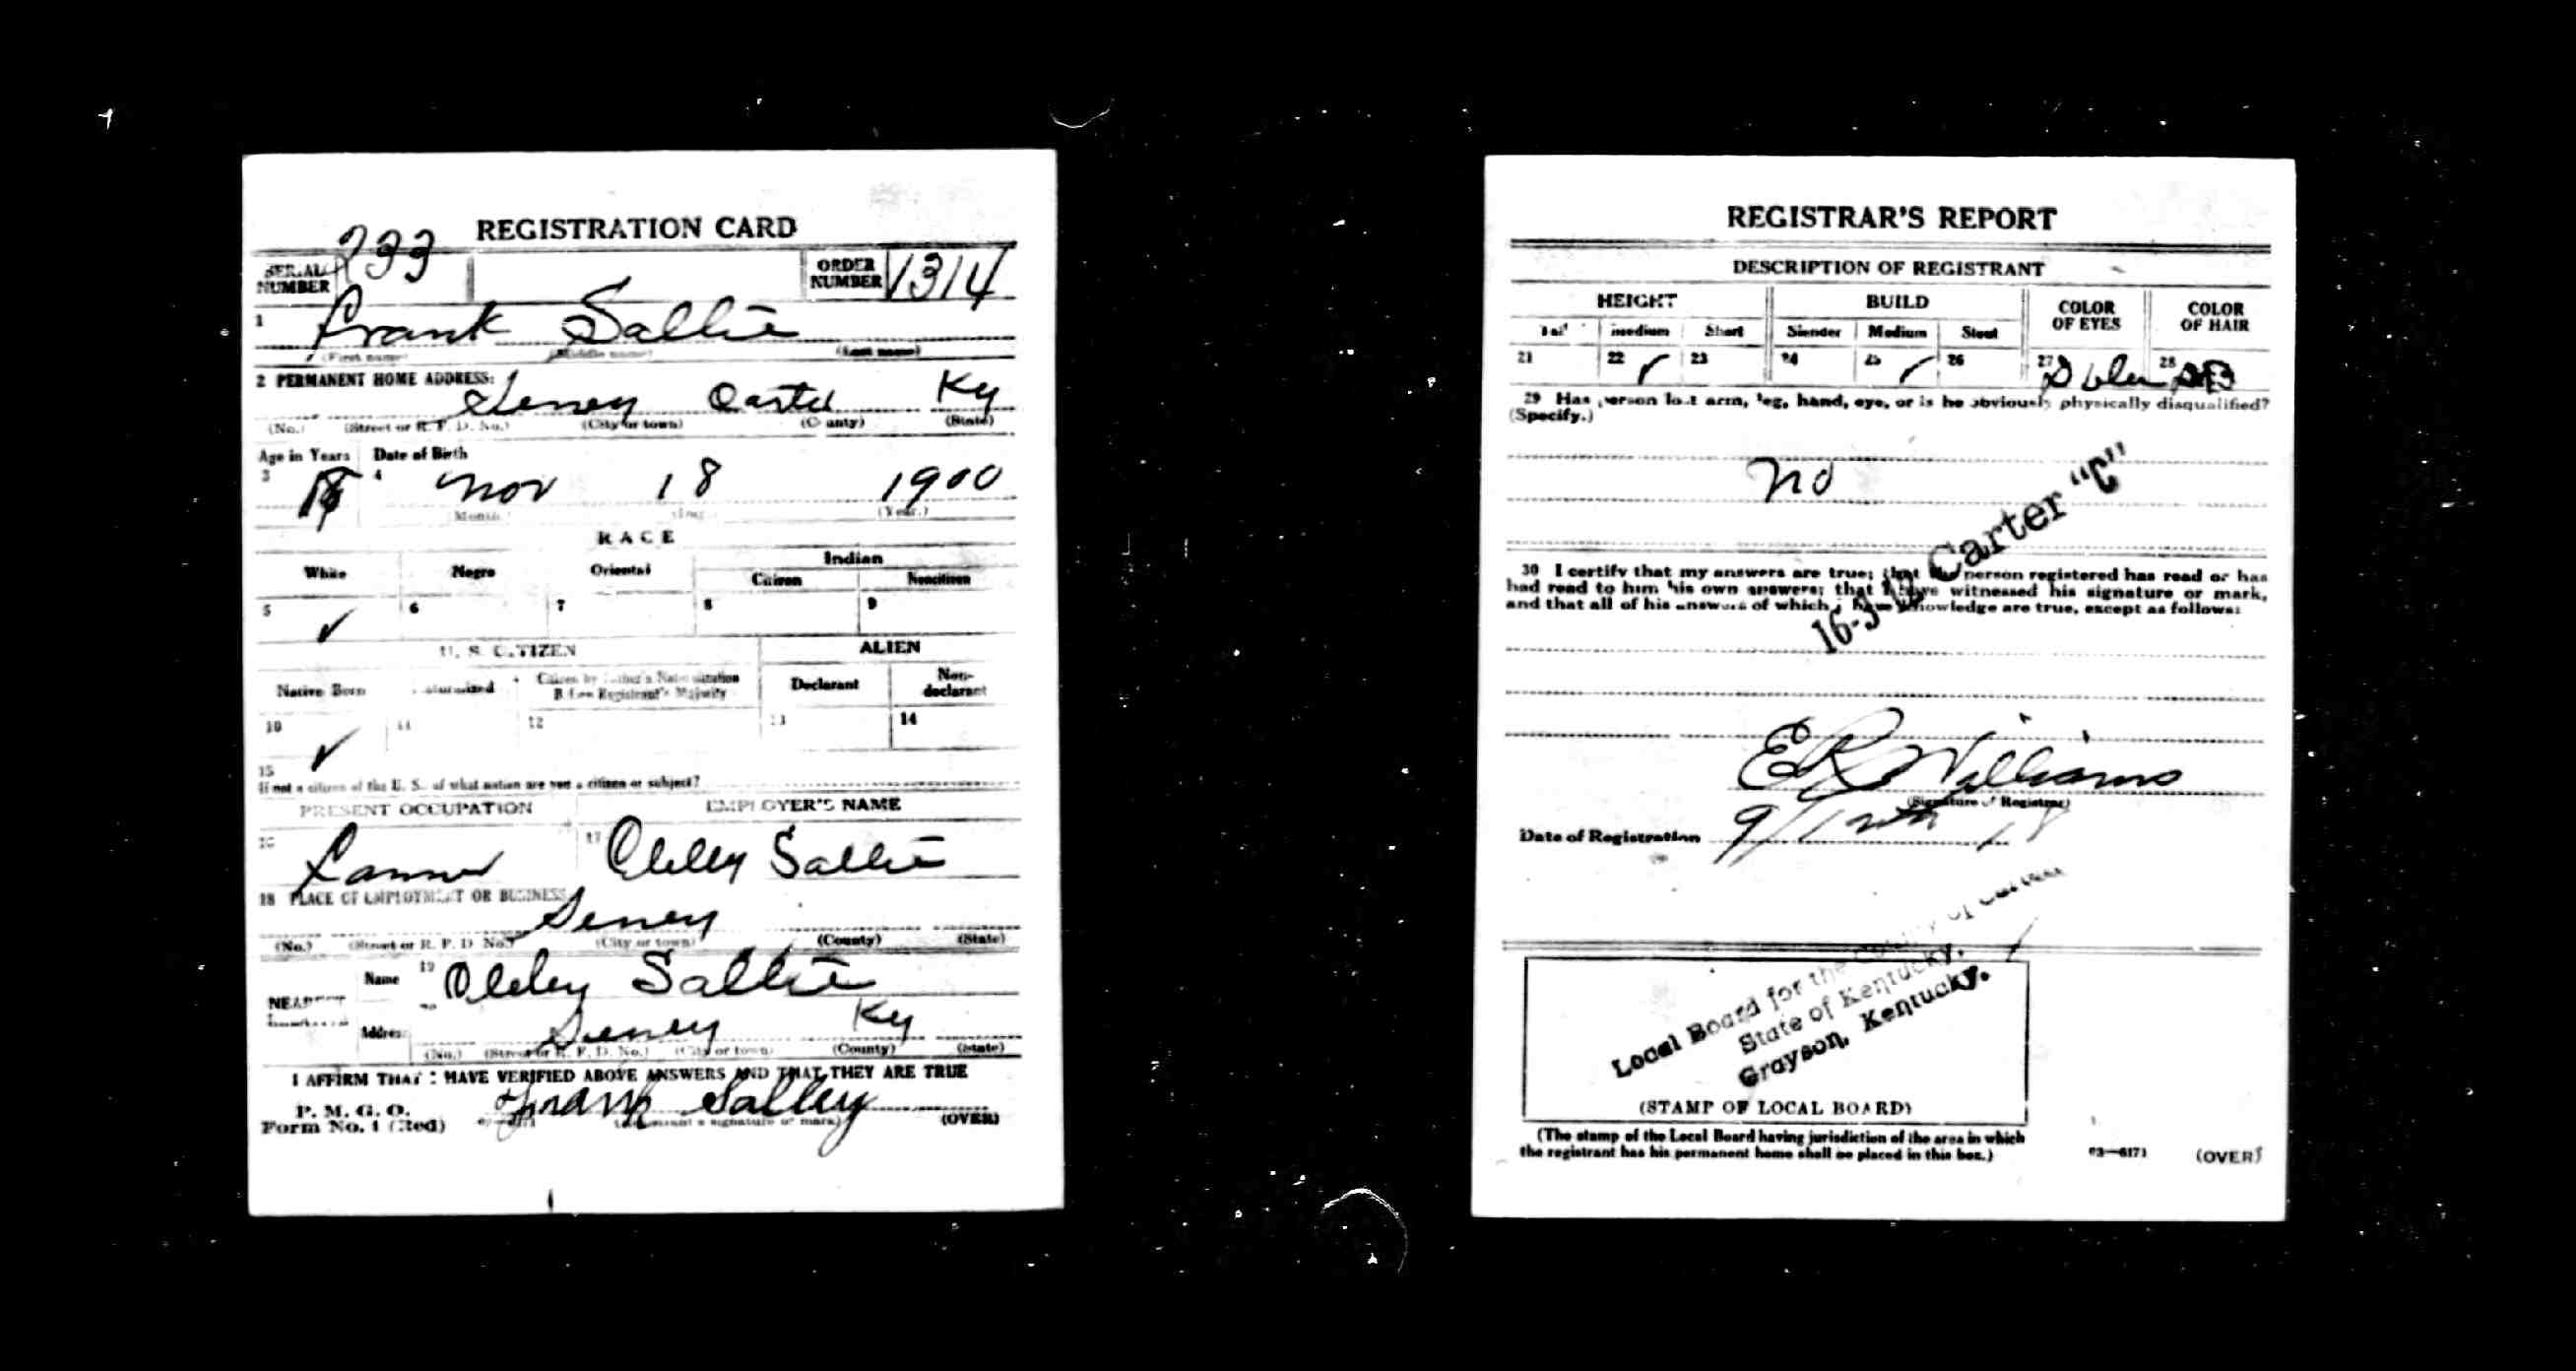 REGISTRATION CARD
SERIAL NUMBER 233 ORDER NUMBER 1314
1 Frank Sallie
(First name) (Middle name) (Last name)
2 PERMANENT HOME ADDRESS:
Carter Ky
(No.) (Street or R. F. D. No.) (City or town) (County) (State)
Age in Years Date of Birth
3 4 Nov 18 1900
Month (Year.)
RACE
White Negro Oriental Indian
Citizen Noncitizen
5 ✓ 6 7 8 9
U. S. CITIZEN ALIEN
Native Born Naturalized Citizen by Father's Naturalization Before Registrant's Majority Declarant Non-declarant
10 ✓ 11 12 13 14
15
If not a citizen of the U. S. of what nation are you a citizen or subject?
PRESENT OCCUPATION EMPLOYER'S NAME
16 17 Sallie
18 PLACE OF EMPLOYMENT OR BUSINESS
(No.) (Street or R. F. D. No.) (City or town) (County) (State)
NEAREST Name 19 Sallie
Address Ky
(No.) (Street or R. F. D. No.) (City or town) (County) (State)
I AFFIRM THAT I HAVE VERIFIED ABOVE ANSWERS AND THAT THEY ARE TRUE
P. M. G. O.
Form No. 1 (Red) Frank Salley (OVER)
(Registrant's signature or mark)
REGISTRAR'S REPORT
DESCRIPTION OF REGISTRANT
HEIGHT BUILD COLOR OF EYES COLOR OF HAIR
Tall Medium Short Slender Medium Stout
21 22 ✓ 23 24 25 ✓ 26 27 28
29 Has person lost arm, leg, hand, eye, or is he obviously physically disqualified?
(Specify.)
No
16-3-12 Carter "C"
30 I certify that my answers are true; that the person registered has read or has
had read to him his own answers; that I have witnessed his signature or mark,
and that all of his answers of which I have knowledge are true, except as follows:
E R Williams
(Signature of Registrar)
Date of Registration 9/12th/18
Local Board for the County of Carter
State of Kentucky,
Grayson, Kentucky.
(STAMP OF LOCAL BOARD)
(The stamp of the Local Board having jurisdiction of the area in which
the registrant has his permanent home shall be placed in this box.)
03—6171 (OVER)